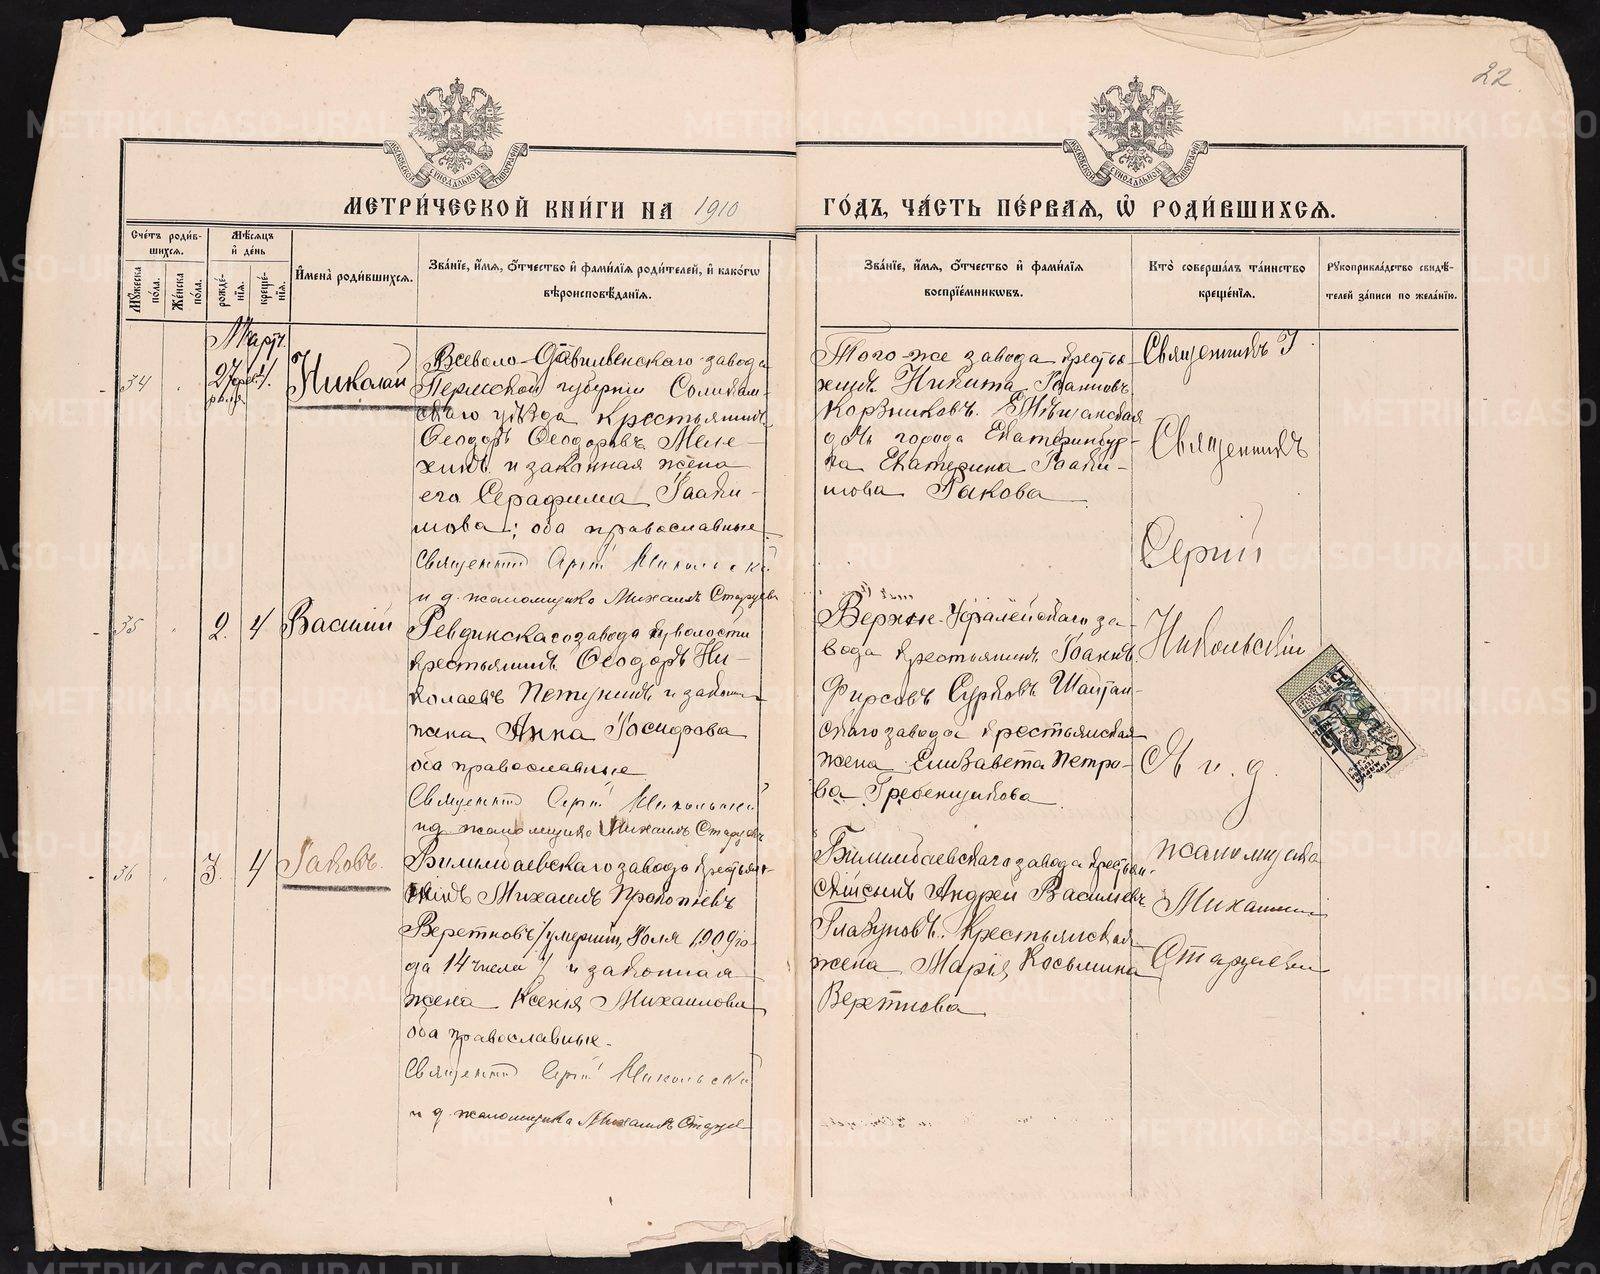 22
МЕТРИ́ЧЕСКОЙ КНИ́ГИ НА 1910
ГО́ДЪ, ЧА́СТЬ ПЕ́РВАЯ, Ѡ РОДИ́ВШИХСЯ.
Сче́тъ роди́в-
шихся.
Му́жеска
по́ла.
Же́нска
по́ла.
Мѣ́сяцъ
и де́нь
рожде́-
нїя.
креще́-
нїя.
Имена̀ роди́вшихся.
Зва́нїе, и́мя, о́тчество и фами́лїя роди́телей, и како́гѡ
вѣроисповѣ́данїя.
Зва́нїе, и́мя, о́тчество и фами́лїя
воспрїе́мникѡвъ.
Кто̀ соверша́лъ та́инство
креще́нїя.
Рукоприкла́дство свидѣ́-
телей за́писи по жела́нїю.
Мартъ
34
27
1.
Николай
Всеволо-Вильвенскаго завода
Пермской губернiи Соликам-
скаго уѣзда крестьянинъ
Ѳеодоръ Ѳеодоровъ Меле-
хинъ и законная жена
его Серафима Iоаки-
мова; оба православные
Священникъ Сергiй Никольскiй
и д. псаломщика Михаилъ Старцевъ
Того-же завода кресть-
нинъ Никита Iоанновъ
Коръзниковъ. Е Мѣщанская
дочь города Екатеринбур-
га Екатерина Iоаки-
мова Ракова
Священникъ
Священникъ
Сергiй
Никольскiй
35
2.
4
Василiй
Ревдинскаго завода и волости
крестьянинъ Ѳеодоръ Ни-
колаевъ Петунинъ и законн
жена Анна Iосифова
оба православные
Священникъ Сергiй Никольскiй
и д. псаломщика Михаилъ Старцевъ
Верхне-Уфалейскаго за-
вода крестьянинъ Iоаннъ
Фирсовъ Сурковъ Шайтан-
скаго завода крестьянская
жена Елизавета Петро-
ва Гребенщикова
И и. д.
36
3.
4
Iаковъ.
Билимбаевскаго завода крестьян-
нинъ Михаилъ Прокопiевъ
Веретновъ /умершiй Iюля 1909 го-
да 14 числа/ и законная
жена Ксенiя Михаилова
оба православные.
Священникъ Сергiй Никольскiй
и д. псаломщика Михаилъ Старцев
Билимбаевскаго завода крестьян-
скiй сынъ Андрей Васильевъ
Глазуновъ. Крестьянская
жена Марiя Косьмина
Веретнова
псаломщика
Михаилъ
Старцевъ
15
15
METRIKI.GASO-URAL.RU